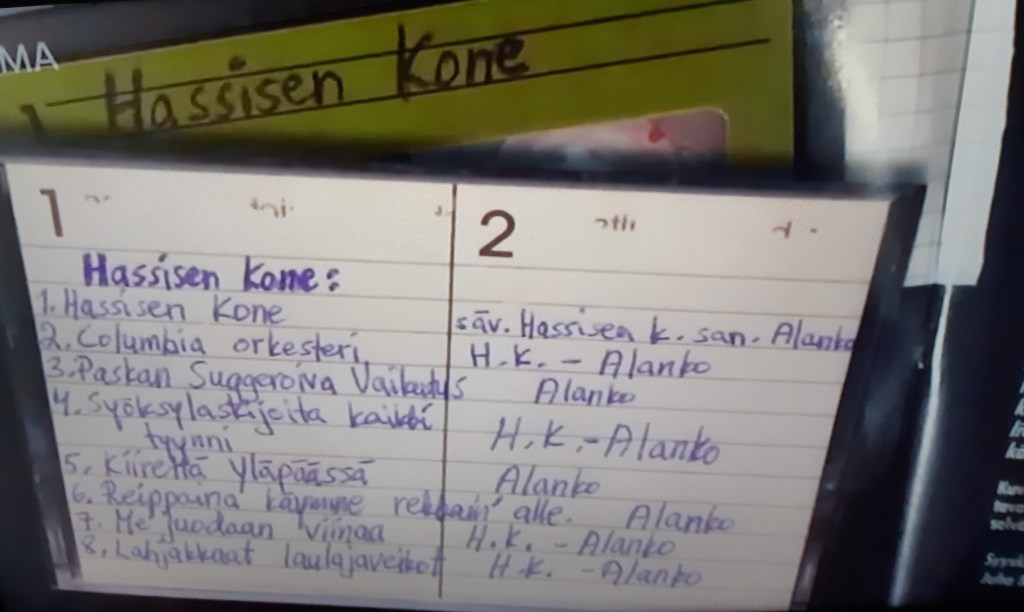 MA
1 Hassisen Kone
1 2
Hassisen Kone:
1. Hassisen Kone säv. Hassisen k. san. Alanko
2. Columbia orkesteri H.K. - Alanko
3. Paskan Suggeroiva Vaikutus Alanko
4. Syöksylaskijoita kaikki
tyynni H.K. - Alanko
5. Kiirettä yläpäässä Alanko
6. Reippaina käymme rekkain alle. Alanko
7. Me juodaan viinaa H.K. - Alanko
8. Lahjakkaat laulajaveikot H.K. - Alanko